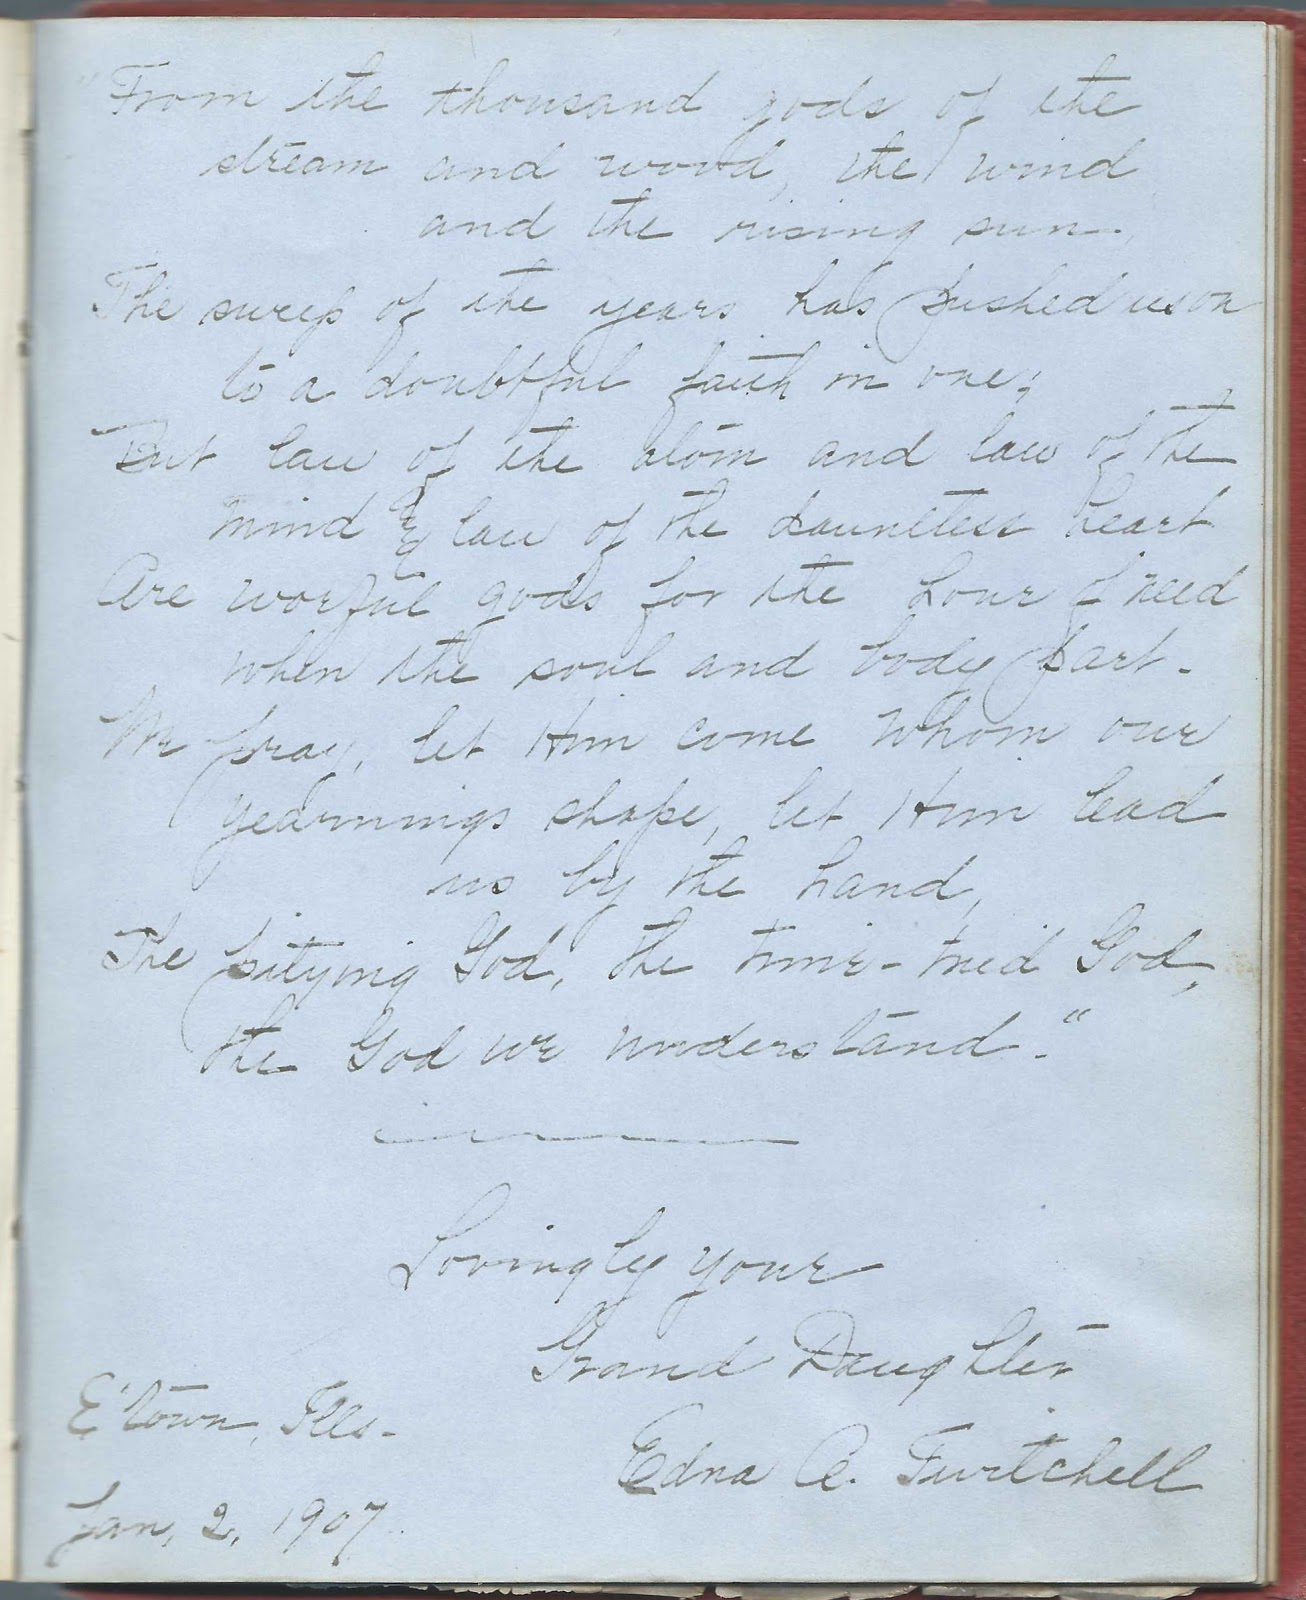 "From the thousand gods of the
stream and wood, the wind
and the rising sun.
The sweep of the years has pushed us on
to a doubtful faith in one;
But law of the atom and law of the
mind & law of the dauntless heart
Are woeful gods for the hour of need
when the soul and body part.
We pray, let Him come whom our
yearnings shape, let Him lead
us by the hand,
The pitying God, the time-tried God,
the God we understand."
Lovingly your
Grand Daughter
Edna A. Twitchell
E'town, Ills.
Jan, 2, 1907.